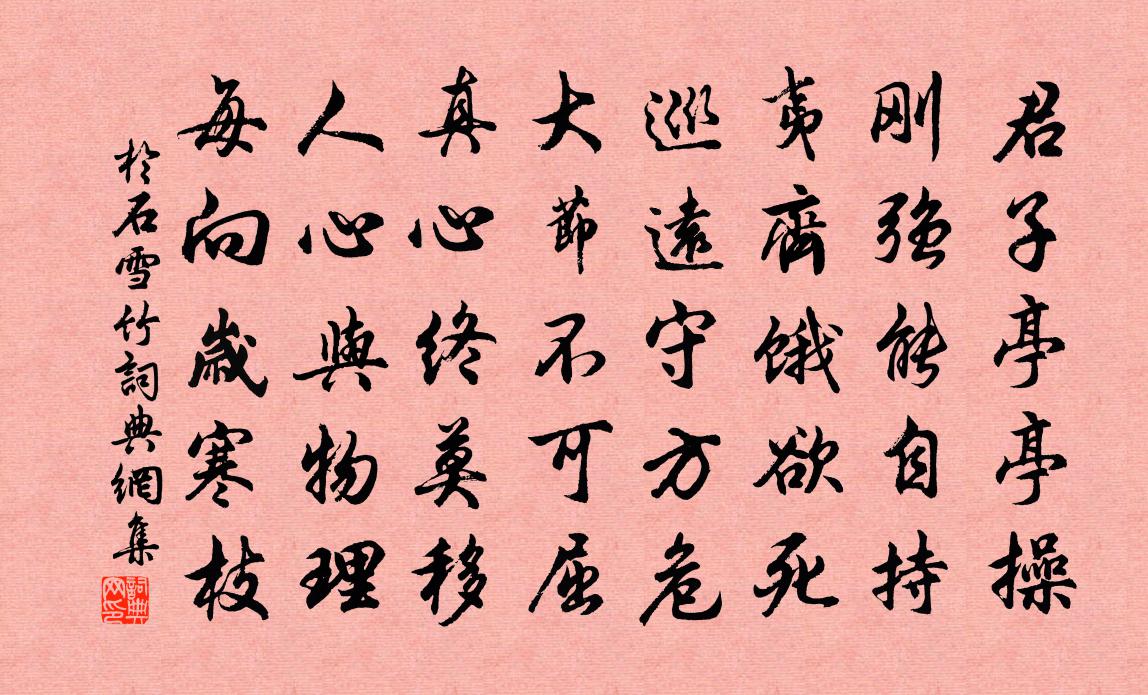 君子亭亭操
剛強能自持
夷齊餓欲死
巡遠守方危
大節不可屈
真心終莫移
人心與物理
每向歲寒枝
於石雪竹詞典網集
詞典網印